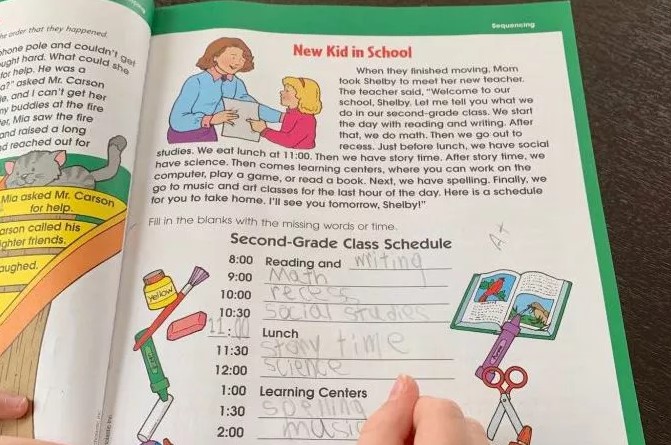 the order that they happened.
phone pole and couldn't get
ught hard. What could she
for help. He was a
a?" asked Mr. Carson
ie, and I can't get her
my buddies at the fire
er, Mia saw the fire
and raised a long
d reached out for
Mia asked Mr. Carson
for help.
arson called his
ghter friends.
aughed.
Sequencing
New Kid in School
When they finished moving, Mom
took Shelby to meet her new teacher.
The teacher said, "Welcome to our
school, Shelby. Let me tell you what we
do in our second-grade class. We start
the day with reading and writing. After
that, we do math. Then we go out to
recess. Just before lunch, we have social
studies. We eat lunch at 11:00. Then we have story time. After story time, we
have science. Then comes learning centers, where you can work on the
computer, play a game, or read a book. Next, we have spelling. Finally, we
go to music and art classes for the last hour of the day. Here is a schedule
for you to take home. I'll see you tomorrow, Shelby!"
Fill in the blanks with the missing words or time.
A+
Second-Grade Class Schedule
8:00 Reading and writing
9:00 Math
10:00 recess
10:30 Social studies
11:00 Lunch
11:30 story time
12:00 science
1:00 Learning Centers
1:30 spelling
2:00 music
Yellow